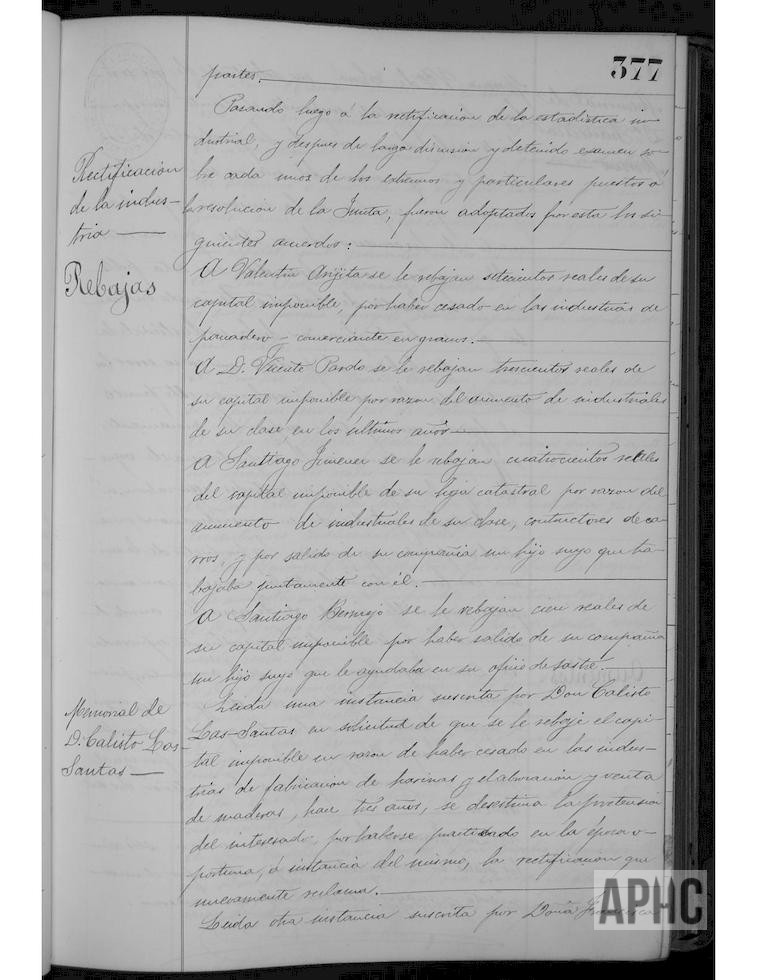 377
partes.
Pasando luego á la rectificacion de la estadistica in-
dustrial, y despues de larga discusion y detenido examen so-
bre cada unos de los extremos y particulares puestos á
la resolucion de la Junta, fueron adoptados por esta los si-
guientes acuerdos:
Rectificacion
de la indus-
tria
Rebajas
A Valentin Arijita se le rebajan setecientos reales de su
capital imponible, por haber cesado en las industrias de
panadero - comerciante en granos.
A D. Vicente Pardo se le rebajan trescientos reales de
su capital imponible por razon del aumento de industriales
de su clase en los últimos años
A Santiago Jimenez se le rebajan cuatrocientos reales
del capital imponible de su hoja catastral por razon del
aumento de industriales de su clase, contructores de ca-
rros, y por salido de su compañia un hijo suyo que tra-
bajaba juntamente con él.
A Santiago Bermejo se le rebajan cien reales de
su capital imponible por haber salido de su compañia
un hijo suyo que le ayudaba en su oficio de sastre.
Memorial de
D. Calisto Las-
Santas
Leida una instancia suscrita por Don Calisto
Las-Santas en solicitud de que se le rebaje el capi-
tal imponible en razon de haber cesado en las indus-
trias de fabricacion de harinas y elaboracion y venta
de maderas, hace tres años, se desestima la pretension
del interesado, por haberse practicado en la época o-
portuna, á instancia del mismo, la rectificacion que
nuevamente reclama.
Leida otra instancia suscrita por Doña Francisca
APHC